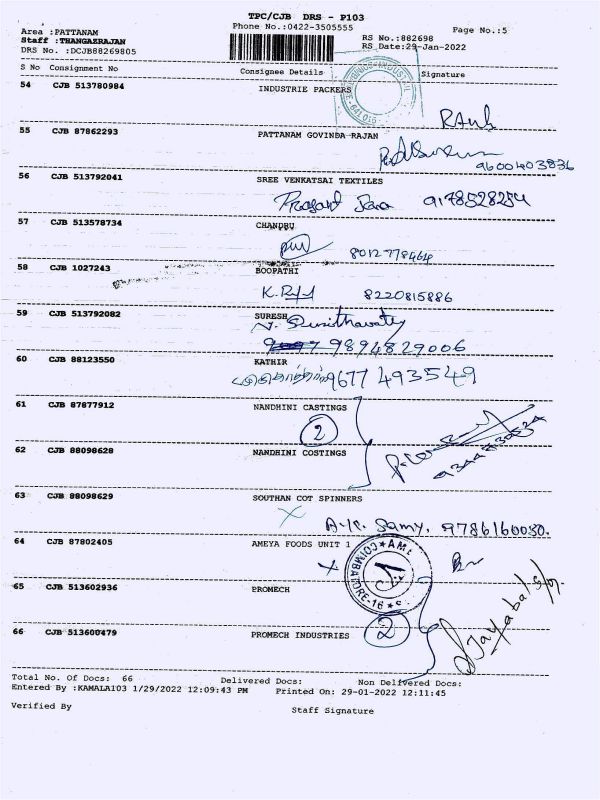 TPC/CJB DRS - P103
Area :PATTANAM Phone No.:0422-3505555 Page No.:5
Staff :THANGAZRAJAN RS No.:882698
DRS No. :DCJB88269805 RS Date:29-Jan-2022
S No Consignment No Consignee Details Signature
54 CJB 513780984 INDUSTRIE PACKERS
55 CJB 87862293 PATTANAM GOVINDA RAJAN
9600403836
56 CJB 513792041 SREE VENKATSAI TEXTILES
57 CJB 513578734 CHANDRU
8012778464
58 CJB 1027243 BOOPATHI
8220815886
59 CJB 513792082 SURESH
9894829006
60 CJB 88123550 KATHIR
9677493549
61 CJB 87877912 NANDHINI CASTINGS
2
62 CJB 88098628 NANDHINI COSTINGS
63 CJB 88098629 SOUTHAN COT SPINNERS
A.K. Samy. 9786160030.
64 CJB 87802405 AMEYA FOODS UNIT 1
COIMBATORE-16
65 CJB 513602936 PROMECH
66 CJB 513600479 PROMECH INDUSTRIES 2
Total No. Of Docs: 66 Delivered Docs: Non Delivered Docs:
Entered By :KAMALA103 1/29/2022 12:09:43 PM Printed On: 29-01-2022 12:11:45
Verified By Staff Signature